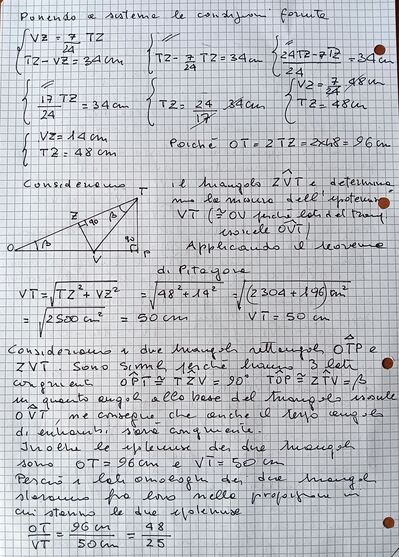 Ponendo a sistema le condizioni fornite
{ VZ = 7/24 TZ
TZ - VZ = 34 cm
{ //
TZ - 7/24 TZ = 34 cm
{ //
24TZ - 7TZ / 24 = 34 cm
{ //
17/24 TZ = 34 cm
{ //
TZ = 24/17 34 cm
{ VZ = 7/24 48 cm
TZ = 48 cm
{ VZ = 14 cm
TZ = 48 cm
Poiché OT = 2TZ = 2x48 = 96 cm
Consideriamo il triangolo ZVT e determinia
mo la misura dell'ipotenusa
VT (≅ OV perché lati del triang
isoscele OVT)
Applicando il teorema
di Pitagora
T
Z 90 β
O β V 90 P
VT = √TZ² + VZ² = √48² + 14² = √(2304 + 196) cm²
= √2500 cm² = 50 cm VT = 50 cm
Consideriamo i due triangoli rettangoli OTP e
ZVT. Sono simili perché hanno 3 lati
congruenti OPT ≅ TZV = 90° TOP ≅ ZTV = β
in quanto angoli alla base del triangolo isoscele
OVT, ne consegue che anche il terzo angolo
di entrambi sarà congruente.
Inoltre le ipotenuse dei due triangoli
sono OT = 96 cm e VT = 50 cm
Perciò i lati omologhi dei due triangoli
staranno fra loro nella proporzione in
cui stanno le due ipotenuse
OT/VT = 96 cm/50 cm = 48/25